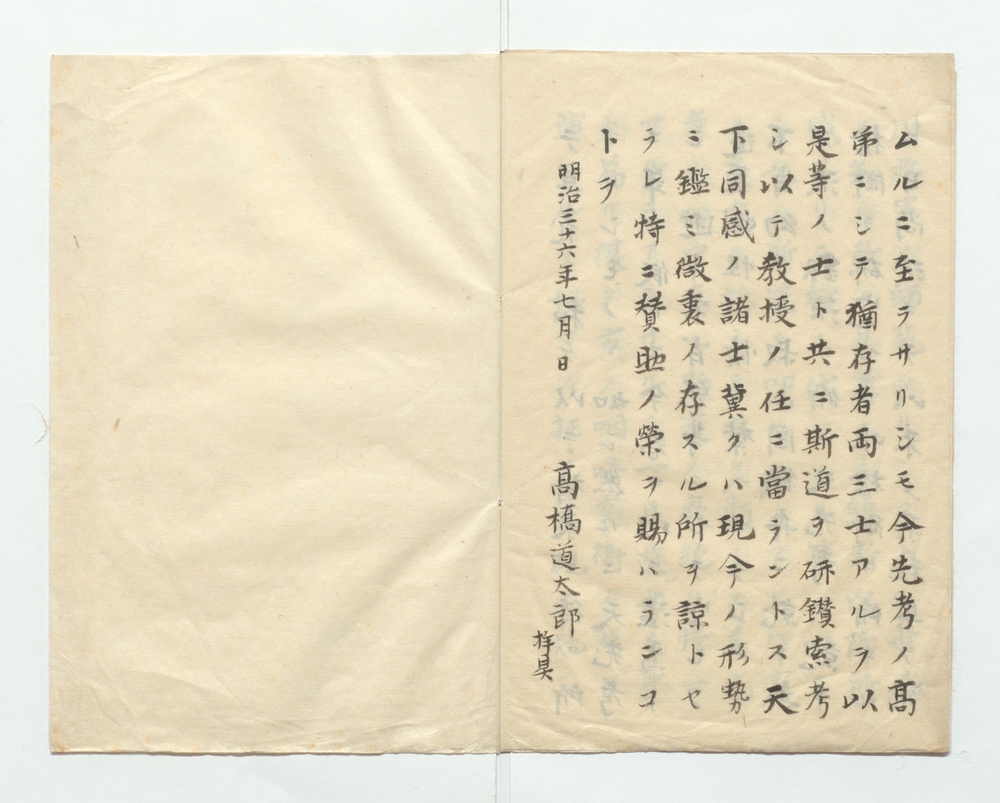 ムルニ至ラサリシモ今先考ノ高
弟ニシテ猶存者両三士アルヲ以
是等ノ士ト共ニ斯道ヲ研鑚索考
シ以テ教授ノ任ニ當ラントス天
下同感ノ諸士冀クハ現今ノ形勢
ニ鑑ミ微衷ノ存スル所ヲ諒トセ
ラレ特ニ賛助ノ榮ヲ賜ハランコ
トヲ
明治三十六年七月日
髙橋道太郎
拝具